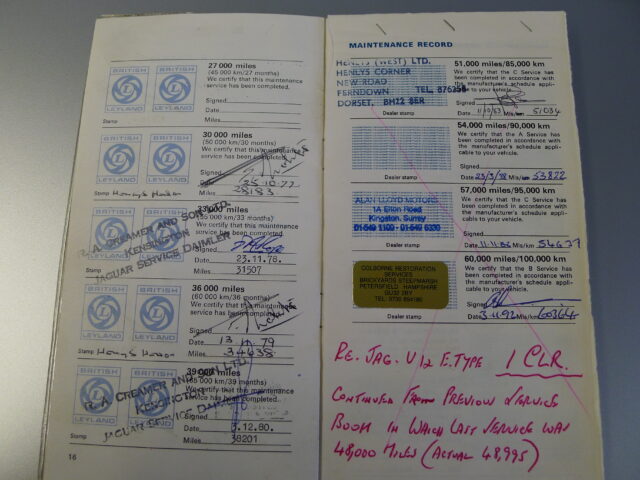 BRITISH
BRITISH
LEYLAND
LEYLAND
Stamp
27 000 miles
(45 000 km/27 months)
We certify that this maintenance
service has been completed.
Signed
Date
Miles
BRITISH
BRITISH
LEYLAND
LEYLAND
Stamp
30 000 miles
(50 000 km/30 months)
We certify that this maintenance
service has been completed.
Signed
Date 25.10.77
Miles 28183
BRITISH
BRITISH
R. A. CREAMER AND SON LTD.
KENSINGTON
JAGUAR SERVICE DAIMLER
33 000 miles
(55 000 km/33 months)
We certify that this maintenance
service has been completed.
Signed
Date 23.11.78.
Miles 31507
BRITISH
BRITISH
LEYLAND
LEYLAND
Stamp
36 000 miles
(60 000 km/36 months)
We certify that this maintenance
service has been completed.
Signed
Date 13 79
Miles 34638
BRITISH
BRITISH
R. A. CREAMER AND SON LTD.
KENSINGTON
JAGUAR SERVICE
LEYLAND
LEYLAND
Stamp
39 000 miles
(65 000 km/39 months)
We certify that this maintenance
service has been completed.
Signed
Date 3.12.80.
Miles 38201
16
MAINTENANCE RECORD
HENLYS (WEST) LTD.
HENLYS CORNER
NEW ROAD
FERNDOWN TEL. 876255
DORSET, BH22 8ER
Dealer stamp
51,000 miles/85,000 km
We certify that the C Service has
been completed in accordance with
the manufacturer's schedule appli-
cable to your vehicle.
Signed
Date Mls/km 51034
Dealer stamp
54,000 miles/90,000 km
We certify that the A Service has
been completed in accordance with
the manufacturer's schedule applic-
able to your vehicle.
Signed
Date Mls/km 53822
ALAN LLOYD MOTORS
1A Elton Road
Kingston, Surrey
01-549 1109 - 01-549 6330
Dealer stamp
57,000 miles/95,000 km
We certify that the C Service has
been completed in accordance with
the manufacturer's schedule appli-
cable to your vehicle.
Signed
Date Mls/km 54637
COLBORNE RESTORATION
SERVICES
BRICKYARDS STEEP MARSH
PETERSFIELD HAMPSHIRE
Dealer stamp
60,000 miles/100,000 km
We certify that the B Service has
been completed in accordance with
the manufacturer's schedule appli-
cable to your vehicle.
Signed
Date 3.11.92 Mls/km 60364
RE. JAG. V12 E.TYPE 1 CLR.
CONTINUED FROM PREVIOUS SERVICE
BOOK IN WHICH LAST SERVICE WAS
48,000 MILES (ACTUAL 48,995)